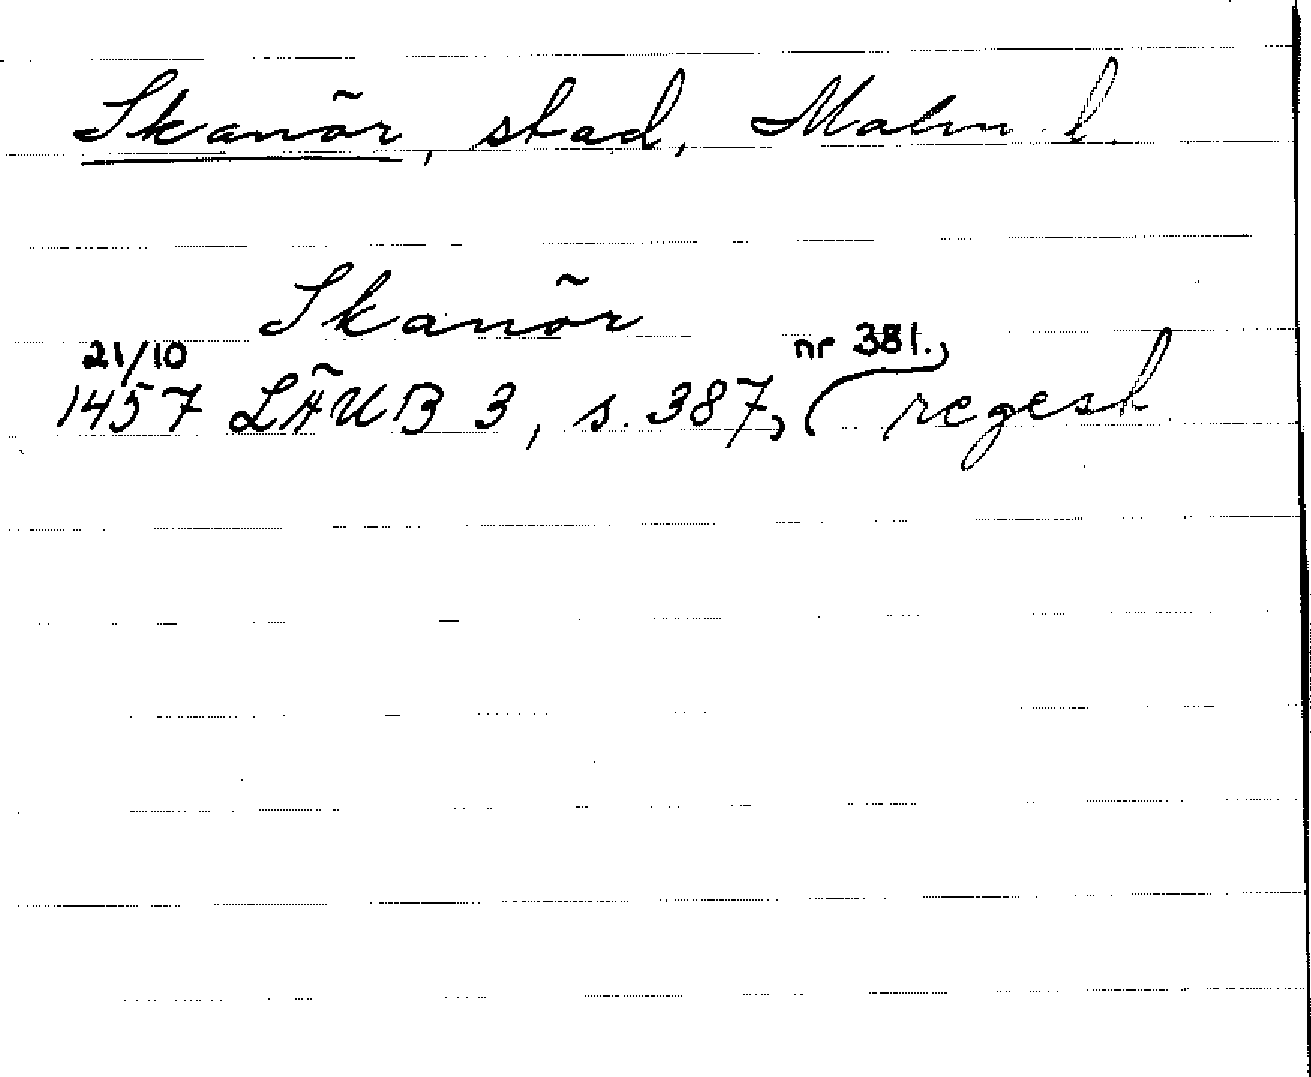 Skanör, stad, Malm. l.
Skanör
21/10 nr 381.,
1457 LÄUB 3, s. 387, regest.